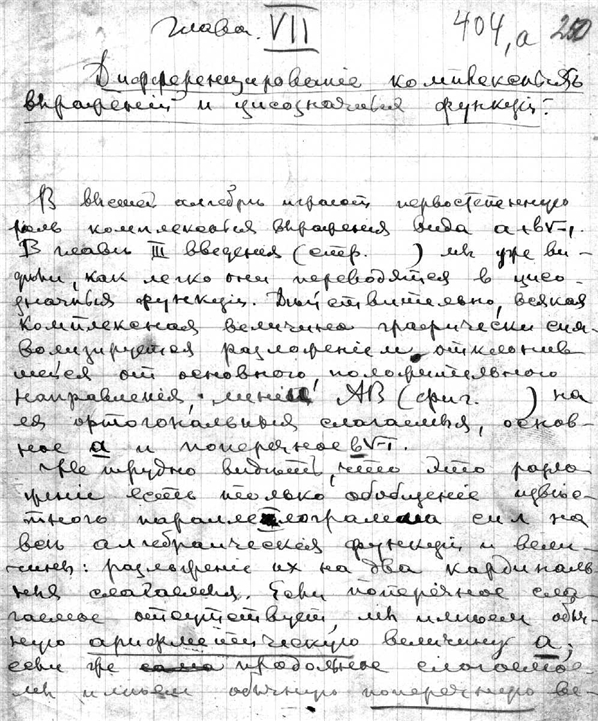 Глава VII
404,а 250
Дифференцированіе комплексныхъ
выраженій и цисозначныя функціи.
В высшей алгебрѣ играютъ первостепенную
роль комплексныя выраженія вида a+b√-1.
В главѣ III введенія (стр. ) мы уже ви-
дѣли, как легко они переводятся в цисо-
значныя функціи. Дѣйствительно, всякая
комплексная величина графически сим-
волизируется разложеніем отклонив-
шейся от основного, положительного
направленія, линіи АВ (фиг. ) на
ея ортогональныя слагаемыя, основ-
ное a и поперечное b√-1.
Не трудно видѣть, что это разло-
женіе есть только обобщеніе извѣс-
тного параллелограмма сил на
всѣ алгебраическія функціи и вели-
чины: разложеніе их на два кардиналь
ныя слагаемыя. Если поперечное сла-
гаемое отсутствует, мы имѣем обыч-
ную арифметическую величину a;
если же продольное слагаемое-
мы имѣем обычную поперечную ве-